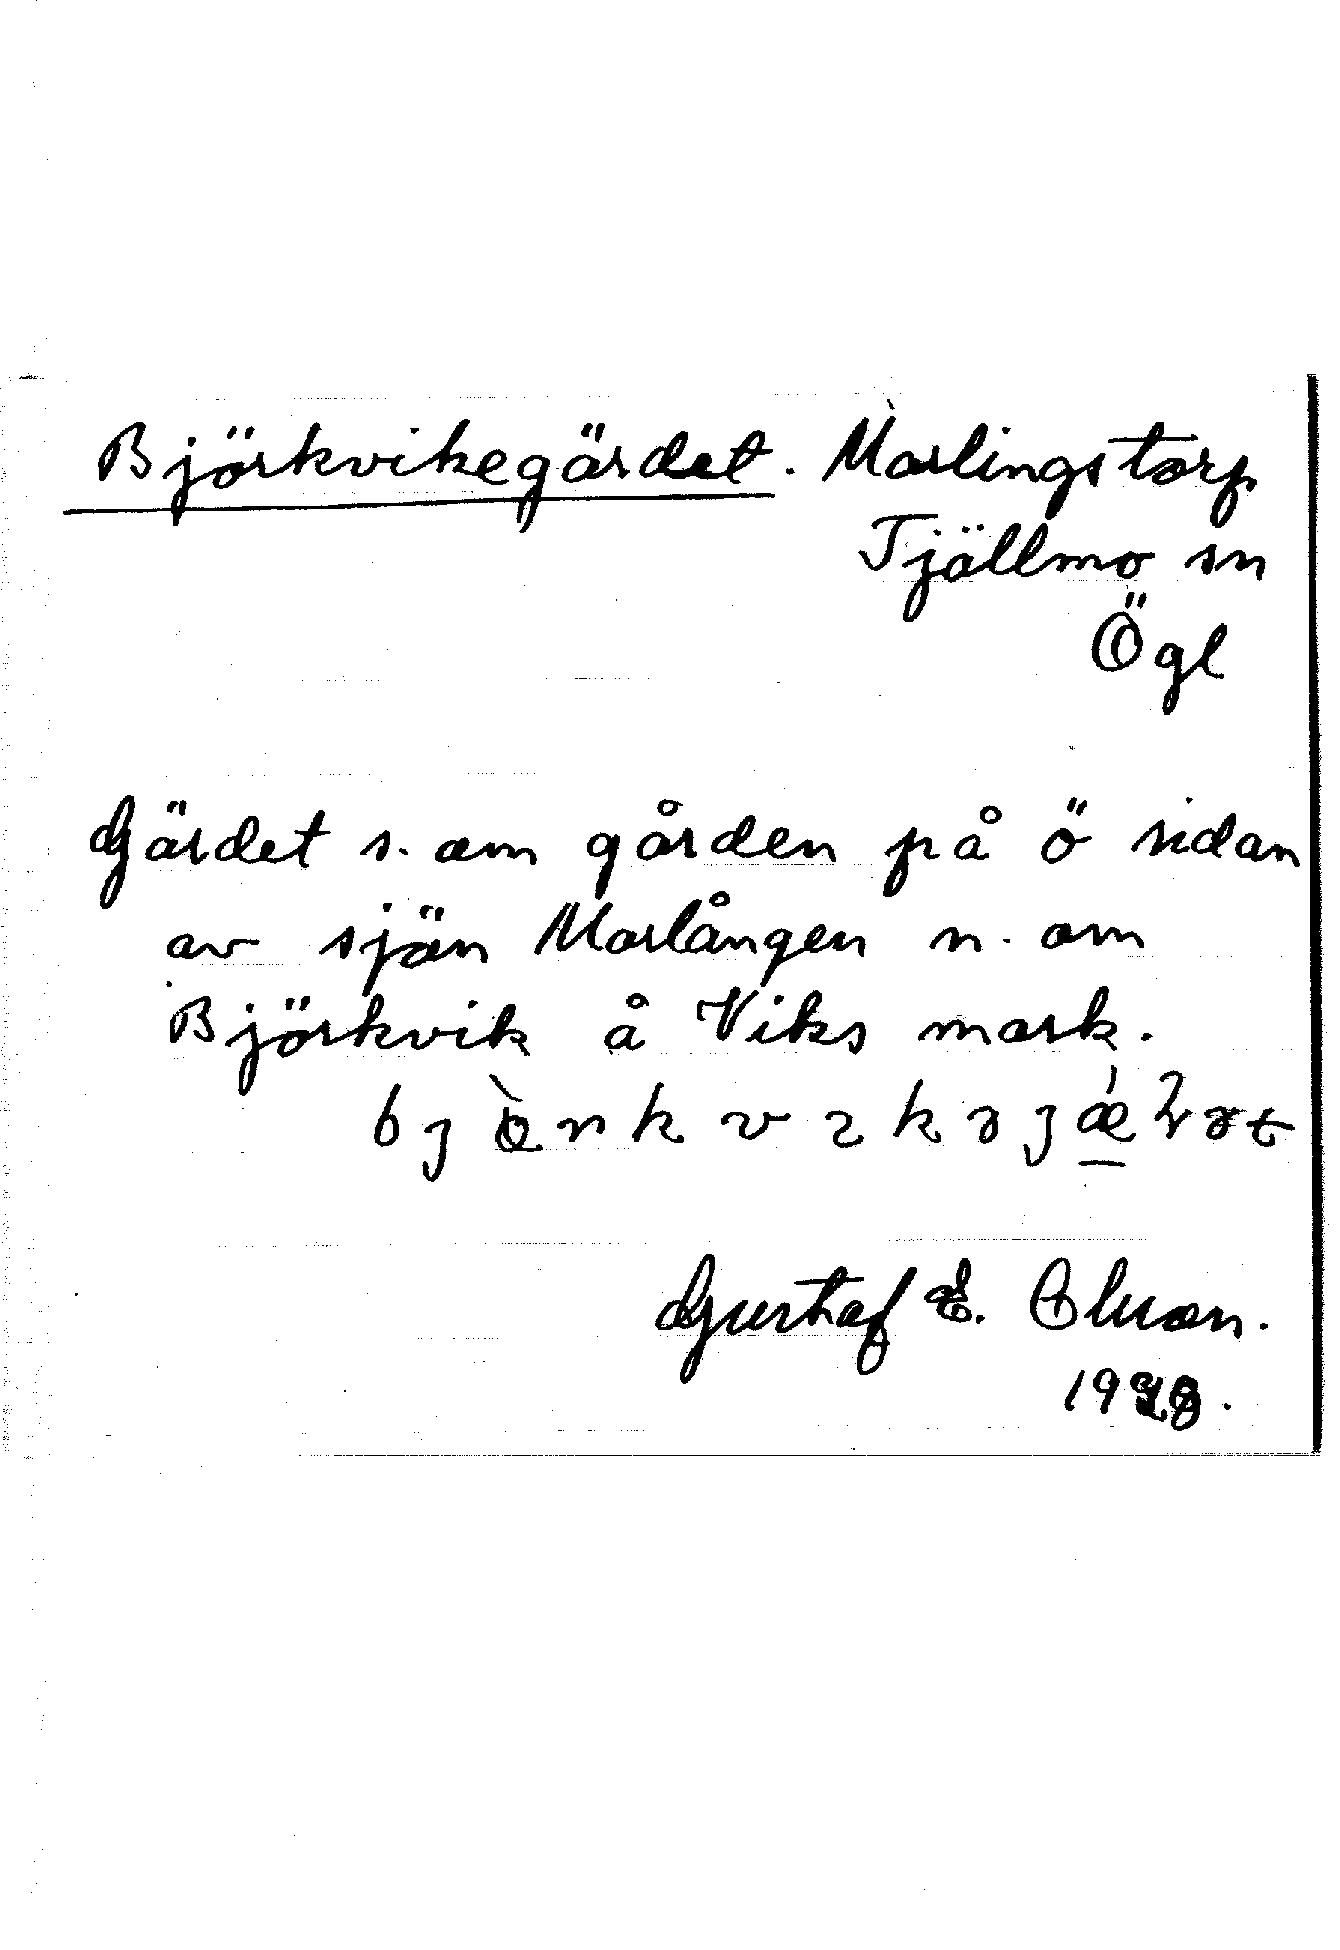 Björkvikegärdet. Morlingstorp
Tjällmo sn
Ögl
Gärdet s. om gården på ö sidan
av sjön Morlången n. om
Björkvik å Viks mark.
Gustaf E. Olsson.